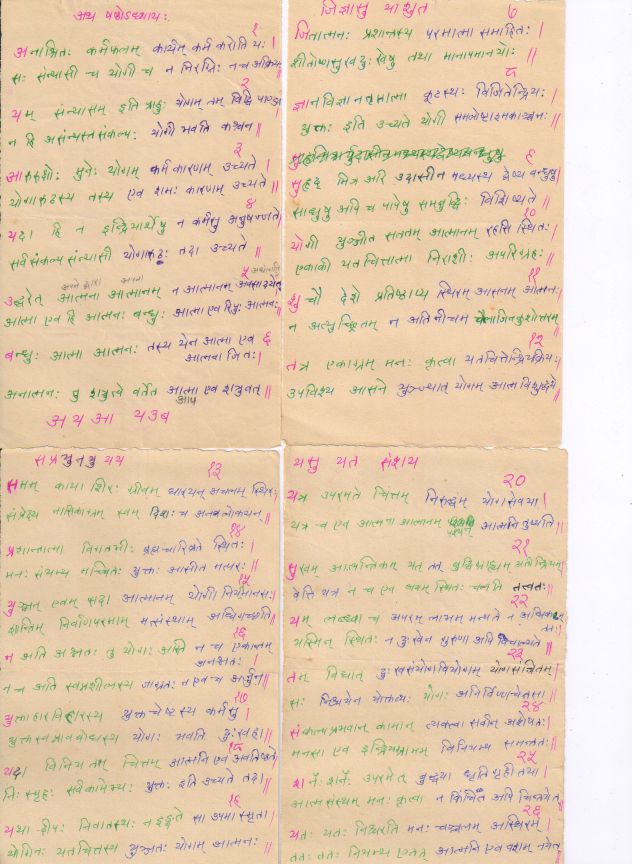 अथ षष्ठोऽध्यायः
१
अनाश्रितः कर्मफलम् कार्यम् कर्म करोति यः।
सः सन्यासी च योगी च न निरग्निः न च अक्रियः
२
यम् संन्यासम् इति प्राहुः योगम् तम् विद्धि पाण्डव
न हि असंन्यस्तसंकल्पः योगी भवति कश्चन॥
३
आरुरुक्षोः मुनेः योगम् कर्म कारणम् उच्यते।
योगारूढस्य तस्य एव शमः कारणम् उच्यते॥
४
यदा हि न इन्द्रियार्थेषु न कर्मसु अनुषज्जते
सर्वसंकल्प संन्यासी योगारूढः तदा उच्यते॥
५
उद्धरेत् आत्मना आत्मानम् न आत्मानम् अवसादयेत्
आत्मा एव हि आत्मनः बन्धुः आत्मा एव रिपुः आत्मनः
६
बन्धुः आत्मा आत्मनः तस्य येन आत्मा एव
आत्मना जितः।
अनात्मनः तु शत्रुत्वे वर्तेत आत्मा एव शत्रुवत्॥
अ य आ य उ ब
जि ज्ञा सु या शु त
७
जितात्मनः प्रशान्तस्य परमात्मा समाहितः।
शीतोष्णसुखदुःखेषु तथा मानापमानयोः॥
८
ज्ञानविज्ञानतृप्तात्मा कूटस्थः विजितेन्द्रियः।
युक्तः इति उच्यते योगी समलोष्टाश्मकाञ्चनः॥
९
सुहृद् मित्र अरि उदासीन मध्यस्थ द्वेष्य बन्धुषु
साधुषु अपि च पापेषु समबुद्धिः विशिष्यते॥
१०
योगी युञ्जीत सततम् आत्मानम् रहसि स्थितः।
एकाकी यतचित्तात्मा निराशीः अपरिग्रहः॥
११
शुचौ देशे प्रतिष्ठाप्य स्थिरम् आसनम् आत्मनः।
न अत्युच्छ्रितम् न अतिनीचम् चैलाजिनकुशोत्तरम्॥
१२
तत्र एकाग्रम् मनः कृत्वा यतचित्तेन्द्रियक्रियः।
उपविश्य आसने युञ्ज्यात् योगम् आत्मविशुद्धये॥
स प्र यु न यु य य
१३
समम् कायशिरः ग्रीवम् धारयन् अचलम् स्थिरः
संप्रेक्ष्य नासिकाग्रम् स्वम् दिशः च अनवलोकयन्॥
१४
प्रशान्तात्मा विगतभीः ब्रह्मचारिव्रते स्थितः।
मनः संयम्य मच्चितः युक्तः आसीत मत्परः॥
१५
युञ्जन् एवम् सदा आत्मानम् योगी नियतमानसः
शान्तिम् निर्वाणपरमाम् मत्संस्थाम् अधिगच्छति
१६
न अति अश्नतः तु योगः अस्ति न च एकान्तम्
अनश्नतः।
न च अति स्वप्नशीलस्य जाग्रतः न एव च अर्जुन॥
१७
युक्ताहारविहारस्य युक्तचेष्टस्य कर्मसु।
युक्तस्वप्नावबोधस्य योगः भवति दुःखहा॥
१८
यदा विनियतम् चित्तम् आत्मनि एव अवतिष्ठते
निःस्पृहः सर्वकामेभ्यः युक्तः इति उच्यते तदा॥
१९
यथा दीपः निवातस्थः न इङ्गते सा उपमा स्मृता।
योगिनः यतचित्तस्य युञ्जतः योगम् आत्मनः॥
य सु य त संशय
२०
यत्र उपरमते चित्तम् निरुद्धम् योगसेवया।
यत्र च एव आत्मना आत्मानम् पश्यन् आत्मनि तुष्यति॥
२१
सुखम् आत्यन्तिकम् यत् तत् बुद्धिग्राह्यम् अतीन्द्रियम्
वेत्ति यत्र न च एव अयम् स्थितः चलति तत्त्वतः॥
२२
यम् लब्ध्वा च अपरम् लाभम् मन्यते न अधिकम्
ततः।
यस्मिन् स्थितः न दुःखेन गुरुणा अपि विचाल्यते॥
२३
तम् विद्यात् दुःखसंयोगवियोगम् योगसंज्ञितम्।
सः निश्चयेन योक्तव्यः योगः अनिर्विण्णचेतसा॥
२४
संकल्पप्रभवान् कामान् त्यक्त्वा सर्वान् अशेषतः।
मनसा एव इन्द्रियग्रामम् विनियम्य समन्ततः॥
२५
शनैः शनैः उपरमेत् बुद्ध्या धृतिगृहीतया।
आत्मसंस्थम् मनः कृत्वा न किंचित् अपि चिन्तयेत्
२६
यतः यतः निश्चरति मनः चञ्चलम् अस्थिरम्।
ततः ततः नियम्य एतत् आत्मनि एव वशम् नयेत्